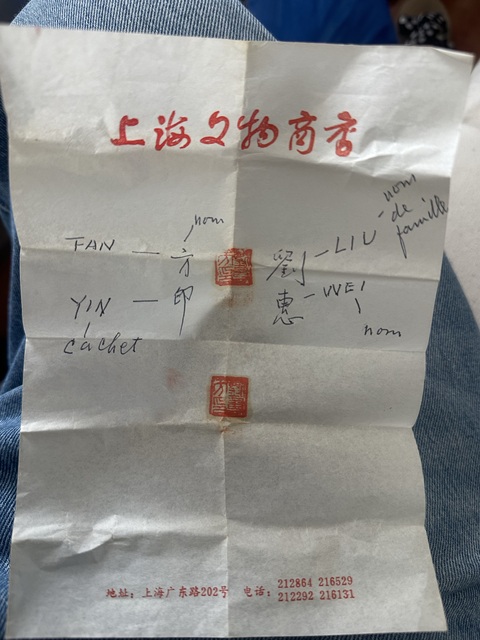 上海文物商店
nom
de
famille
nom
FAN — 方
劉 — LIU
YIN — 印
惠 — WEI
cachet
nom
地址：上海广东路202号 电话：212864 216529
212292 216131